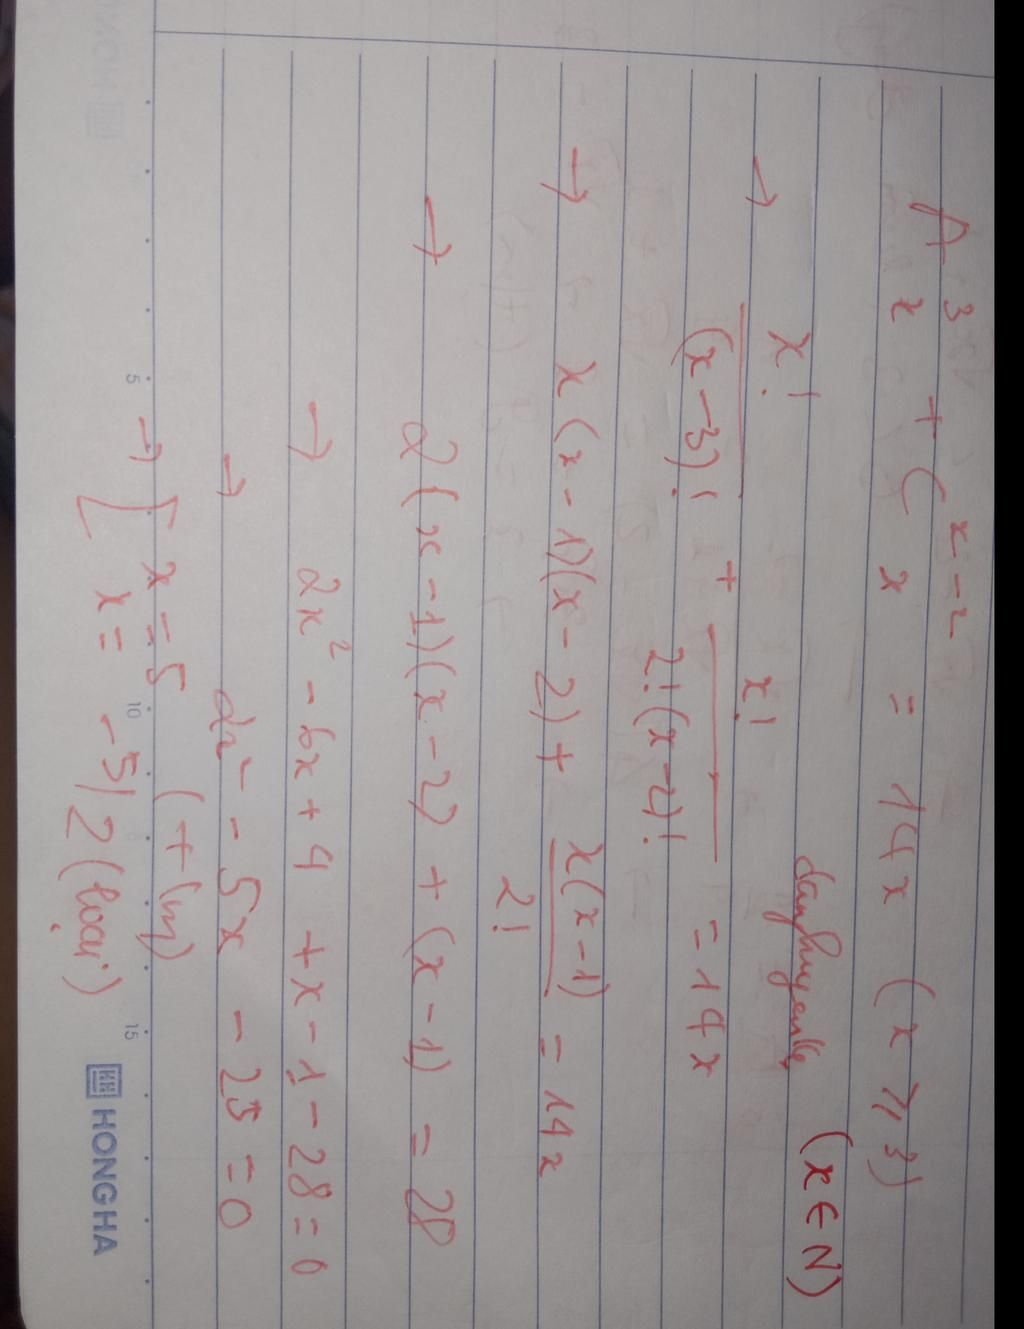 A³ₓ + Cₓˣ⁻² = 14x (x ⩾ 3)
(x ∈ N)
→ x!/(x-3)! + x!/2!(x-2)! = 14x
→ x(x-1)(x-2) + x(x-1)/2! = 14x
→ 2(x-1)(x-2) + (x-1) = 28
→ 2x² - 6x + 4 + x - 1 - 28 = 0
→ 2x² - 5x - 25 = 0
→ [ x = 5 (t/m)
x = -5/2 (loại)
5 10 15 HONG HA